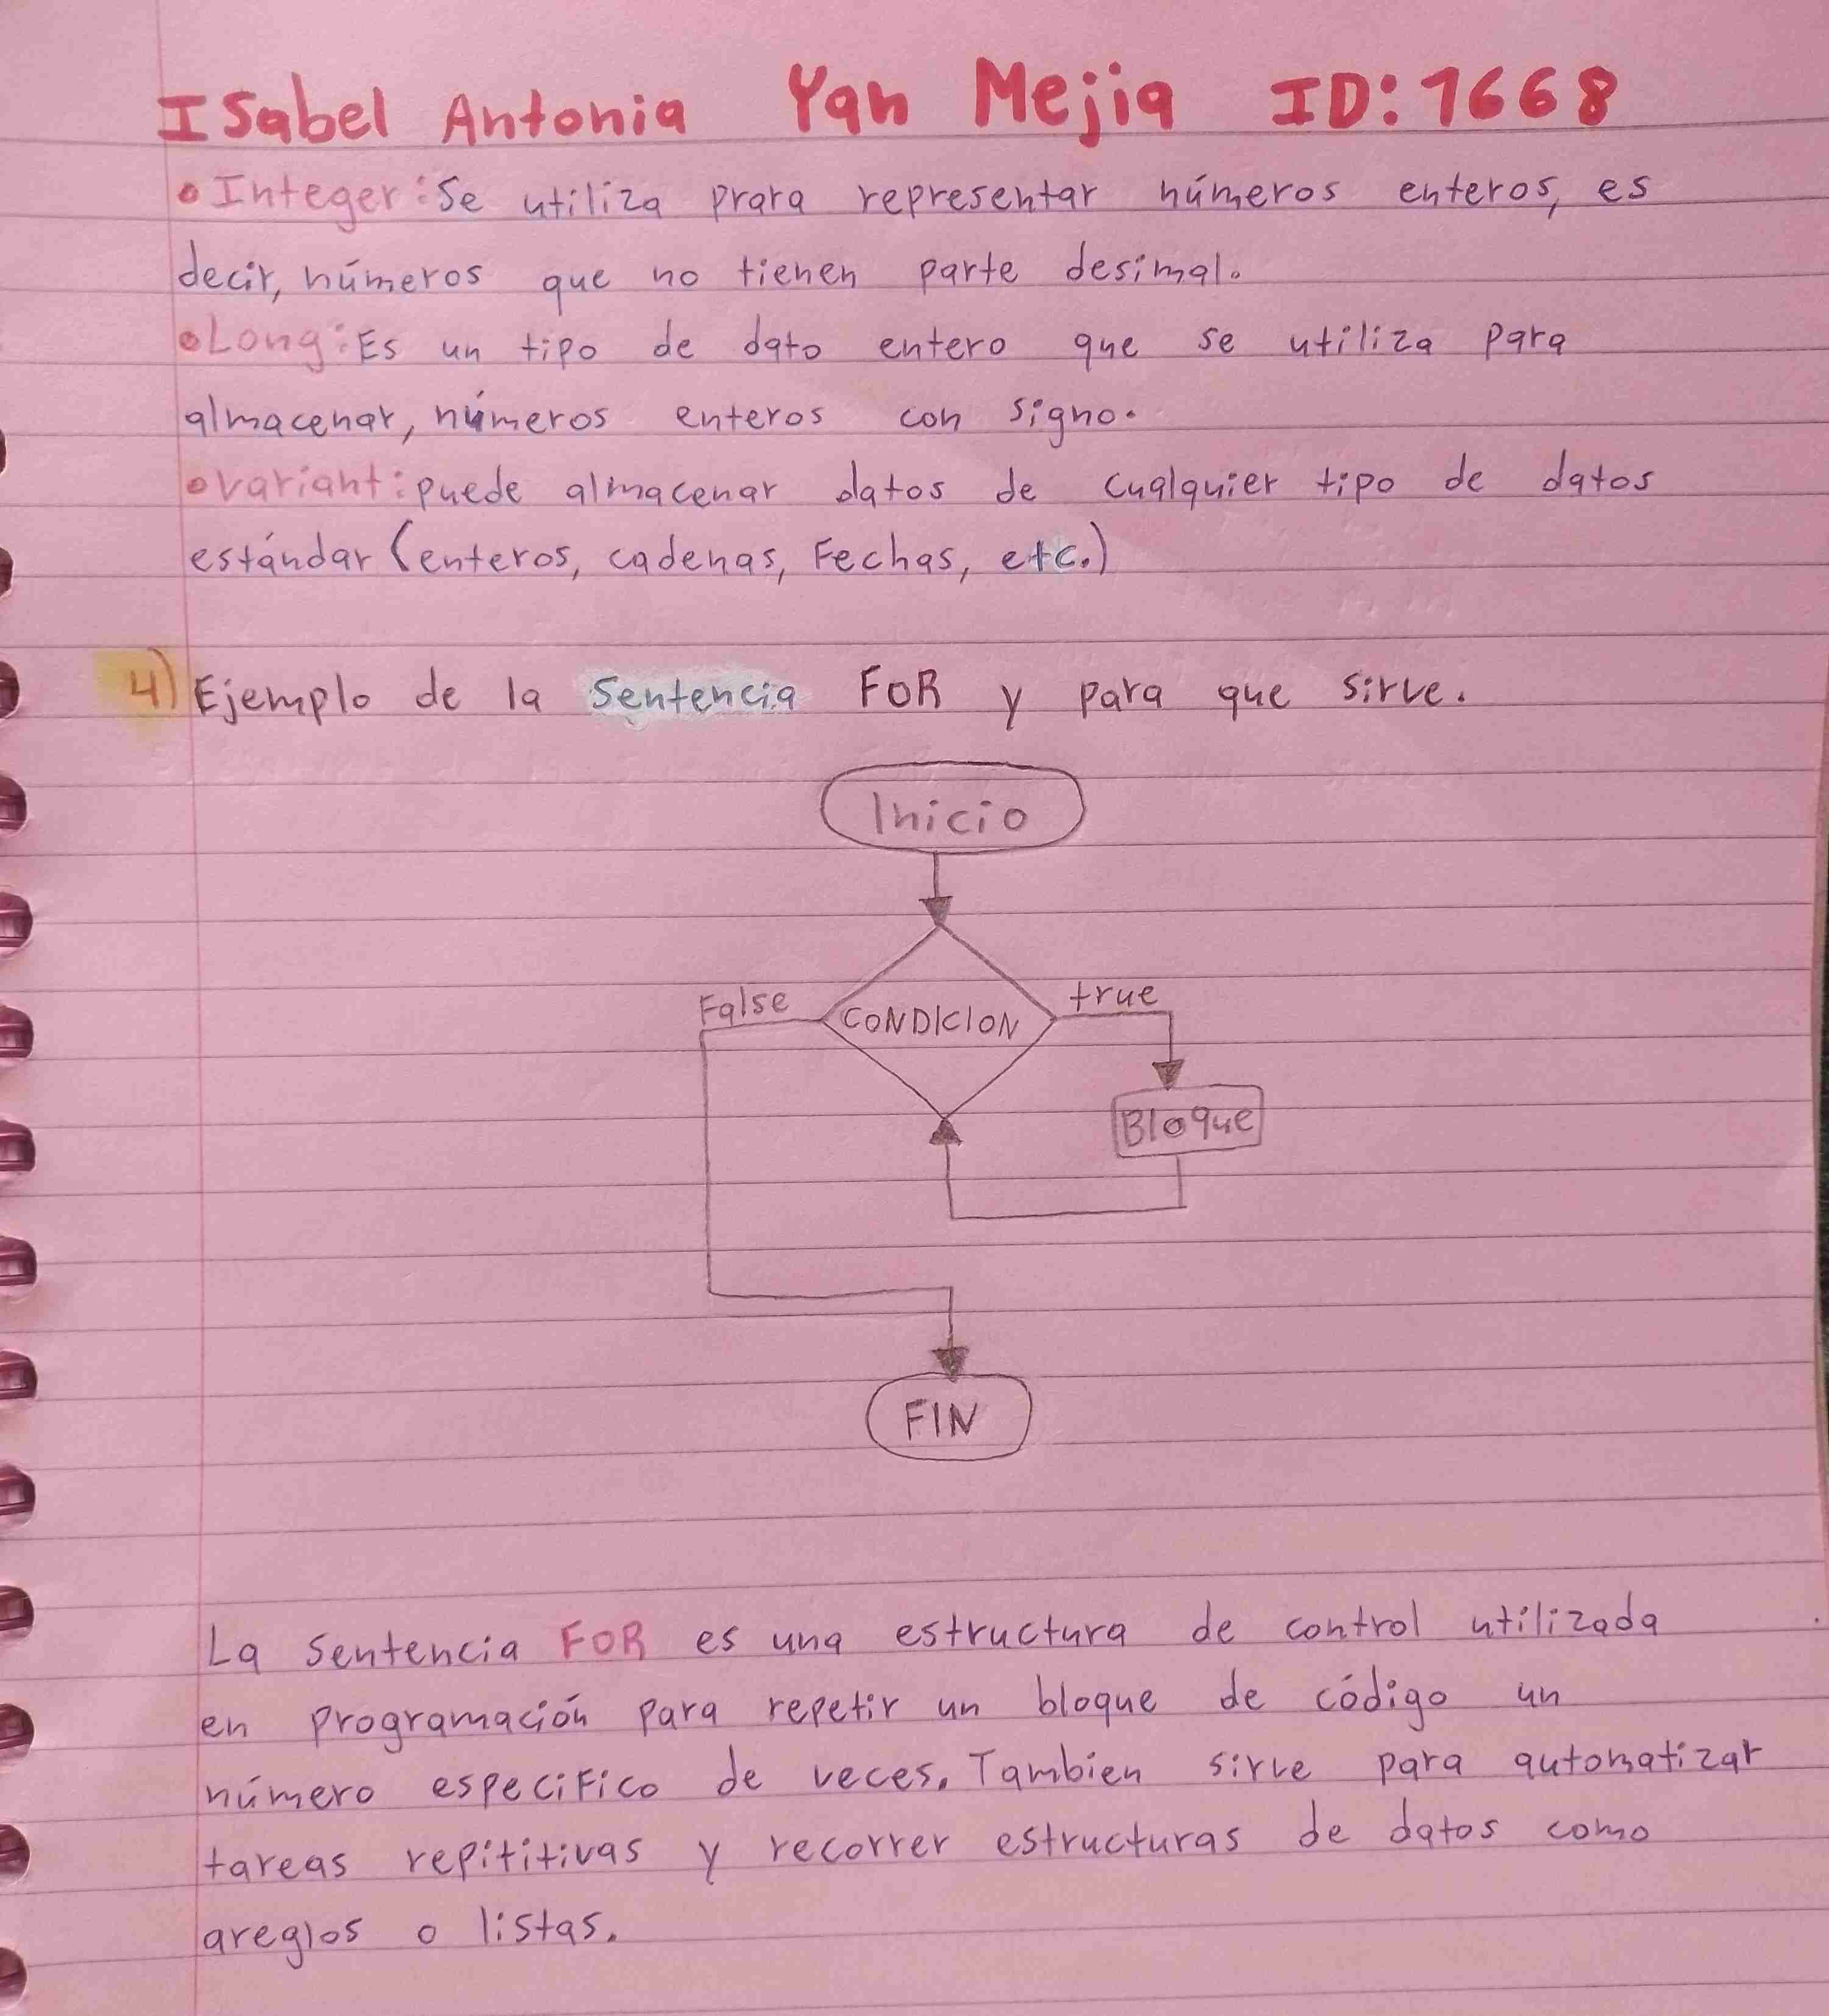 Isabel Antonia Yan Mejia ID: 1668
• Integer: Se utiliza prara representar números enteros, es
decir, números que no tienen parte desimal.
• Long: Es un tipo de dato entero que se utiliza para
almacenar, números enteros con signo.
• variant: puede almacenar datos de cualquier tipo de datos
estándar (enteros, cadenas, Fechas, etc.)
4) Ejemplo de la sentencia FOR y para que sirve.
Inicio
False CONDICION true
Bloque
FIN
La sentencia FOR es una estructura de control utilizada
en programación para repetir un bloque de código un
número especifico de veces. Tambien sirve para automatizar
tareas repititivas y recorrer estructuras de datos como
areglos o listas.